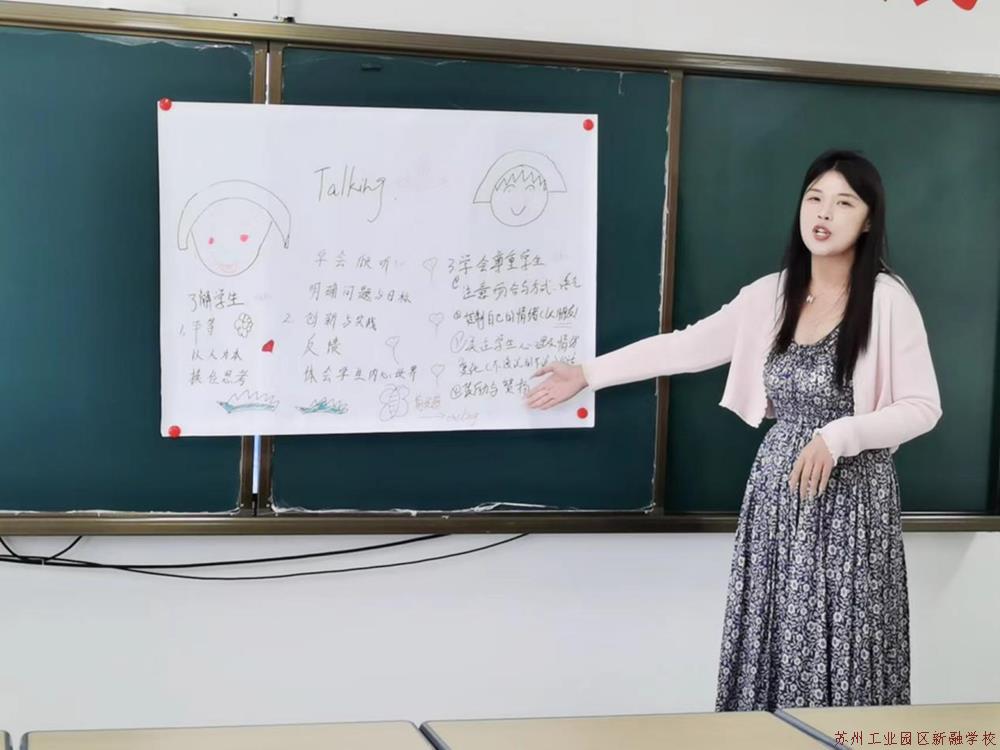 Talking.
了解学生
1. 平等
以人为本
换位思考
学会倾听
明确问题与目标
2. 创新与实践
反馈
体会学生内心世界
3 学会尊重学生
注意场合与方式
控制自己的情绪
关注学生心理及情绪
变化
鼓励与
苏州工业园区新融学校